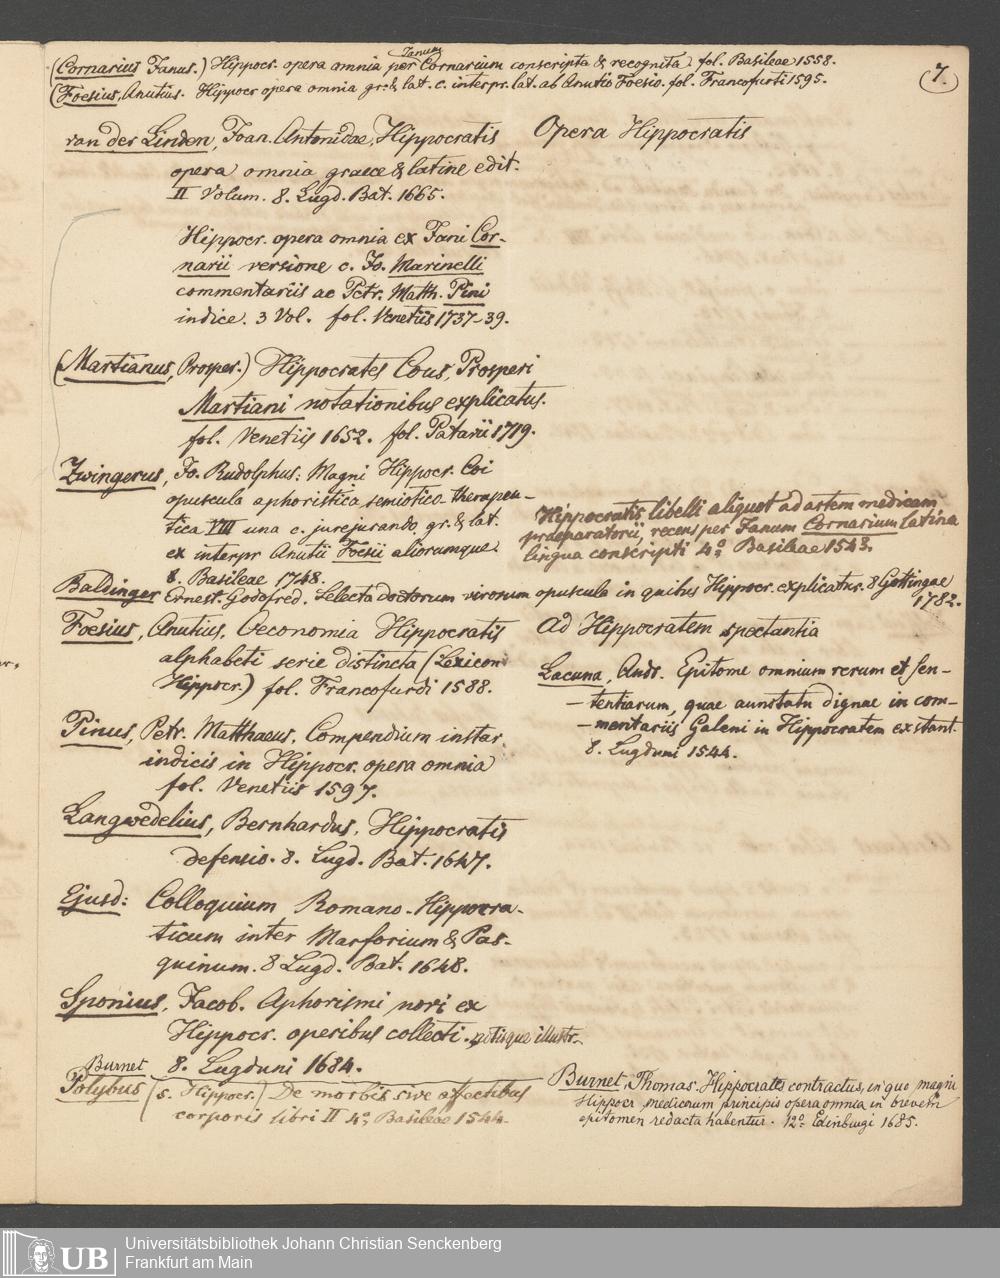 7.
(Cornarius Janus.) Hippocr. opera omnia per Janum Cornarium conscripta & recognita fol. Basileae 1558.
(Foesius, Anutius. Hippocr opera omnia gr. & lat. c. interpr. lat. ab Anutio Foesio. fol. Francofurti 1595.
van der Linden, Joan. Antonidae, Hippocratis
opera omnia graece & latine edit.
II Volum. 8. Lugd. Bat. 1665.
Opera Hippocratis
Hippocr. opera omnia ex Jani Cor-
narii versione c. Jo. Marinelli
commentariis ac Petr. Matth. Pini
indice. 3 Vol. fol. Venetiis 1737-39.
(Martianus, Prosper.) Hippocrates Cous, Prosperi
Martiani notationibus explicatus.
fol. Venetiis 1652. fol. Patavii 1719.
Zwingerus, Jo. Rudolphus: Magni Hippocr. Coi
opuscula aphoristica, semiotico-therapeu-
tica VIII una c. jurejurando gr. & lat.
ex interpr Anutii Foesii aliorumque.
8. Basileae 1748.
Hippocratis libelli aliquot ad artem medicam
praeparatorii, recens per Janum Cornarium latina
lingua conscripti 4o. Basileae 1543.
Baldinger Ernest. Godofred. Selecta doctorum virorum opuscula in quibus Hippocr. explicatur. 8 Gottingae
1782.
Foesius, Anutius, Oeconomia Hippocratis
alphabeti serie distincta (Lexicon
Hippocr.) fol. Francofurdi 1588.
Pinus, Petr. Matthaeus. Compendium instar
indicis in Hippocr. opera omnia
fol. Venetiis 1597.
Langwedelius, Bernhardus, Hippocratis
defensio. 8. Lugd. Bat. 1647.
Ejusd: Colloquium Romano-Hippocra-
ticum inter Marforium & Pas-
quinum. 8 Lugd. Bat. 1648.
Sponius, Jacob. Aphorismi novi ex
Hippocr. operibus collecti. notisque illustr.
8. Lugduni 1684.
Burnet
Polybus (s. Hippocr.) De morbis sive affectibus
corporis libri II 4o. Basileae 1544.
ad Hippocratem spectantia
Lacuna, Andr. Epitome omnium rerum et sen-
-tentiarum, quae annotatu dignae in com-
-mentariis Galeni in Hippocratem exstant.
8. Lugduni 1544.
Burnet, Thomas. Hippocrates contractus, in quo magni
Hippocr. medicorum principis opera omnia in brevem
epitomen redacta habentur. 12o. Edinburgi 1685.
UB
Universitätsbibliothek Johann Christian Senckenberg
Frankfurt am Main